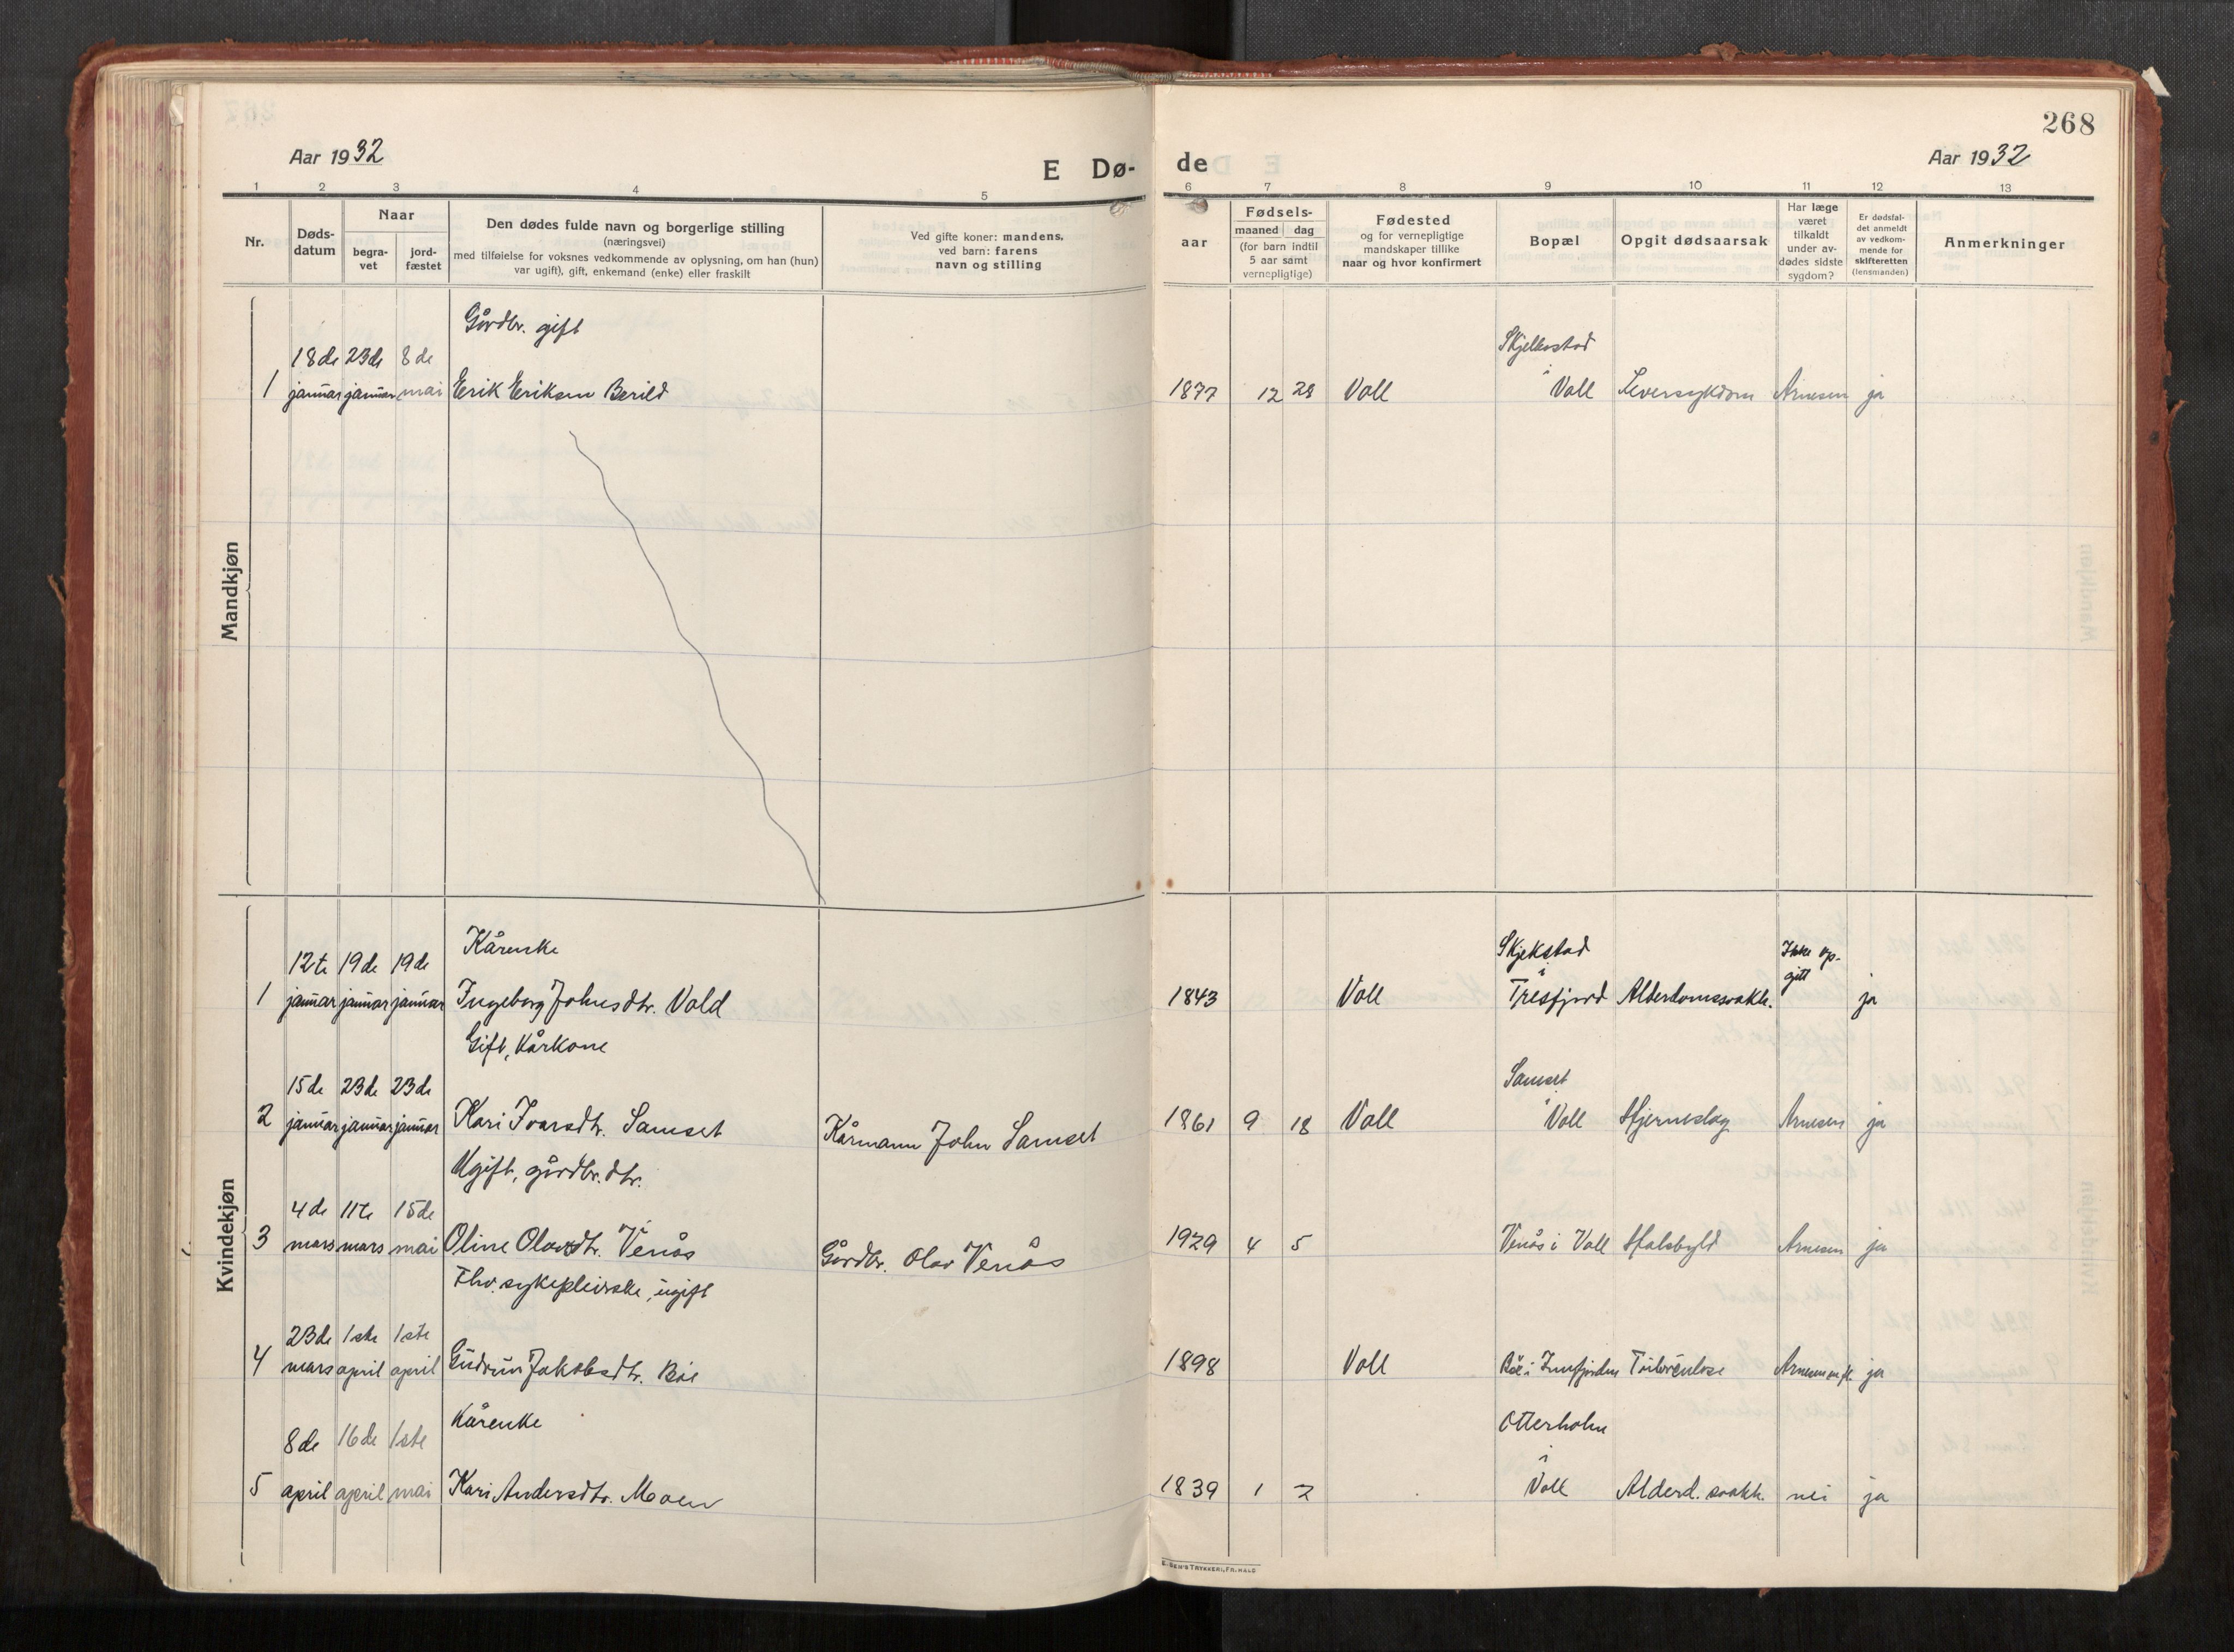 268
Aar 1932
E Dø- de
Aar 1932
1 2 3 4 5 6 7 8 9 10 11 12 13
Nr.
Døds-
datum
Naar
begra-
vet
jord-
fæstet
Den dødes fulde navn og borgerlige stilling
(næringsvei)
med tilføielse for voksnes vedkommende av oplysning, om han (hun)
var ugift), gift, enkemand (enke) eller fraskilt
Ved gifte koner: mandens,
ved barn: farens
navn og stilling
aar
Fødsels-
maaned dag
(for barn indtil
5 aar samt
vernepligtige)
Fødested
og for vernepligtige
mandskaper tillike
naar og hvor konfirmert
Bopæl
Opgit dødsaarsak
Har læge
været
tilkaldt
under av-
dødes sidste
sygdom?
Er dødsfal-
det anmeldt
av vedkom-
mende for
skifteretten
(lensmanden)
Anmerkninger
Mandkjøn
Gårdbr. gift
18de 23de 8de Skjelkestad
i
1 januar januar mai Erik Eriksen Berild 1877 12 28 Voll Voll Leversykdom Arnesen ja
Kvindekjøn
Kårenke
12te 19de 19de Skjekstad Ikke op-
i gitt
1 januar januar januar Ingeborg Johnsdtr. Vold 1843 Voll Tresfjord Alderdomssvakh. ja
Gift, Kårkone
15de 23de 23de Samset
i
2 januar januar januar Kari Ivarsdtr. Samset Kårmann John Samset 1861 9 18 Voll Voll Hjerneslag Arnesen ja
Ugift, gårdbr. dtr.
4de 11te 15de
3 mars mars mai Oline Olavsdtr. Venås Gårdbr. Olav Venås 1929 4 5 Venås i Voll Halsbyld Arnesen ja
Fhv. sykepleierske, ugift
23de 1ste 1ste
4 mars april april Gudrun Jakobsdtr. Bøe 1898 Voll Bøe i Innfjorden Tuberculose Arnesen ja
Kårenke
8de 16de 1ste Otterholm
i
5 april april mai Kari Andersdtr. Moen 1839 1 2 Voll Alderd. svakh. nei ja